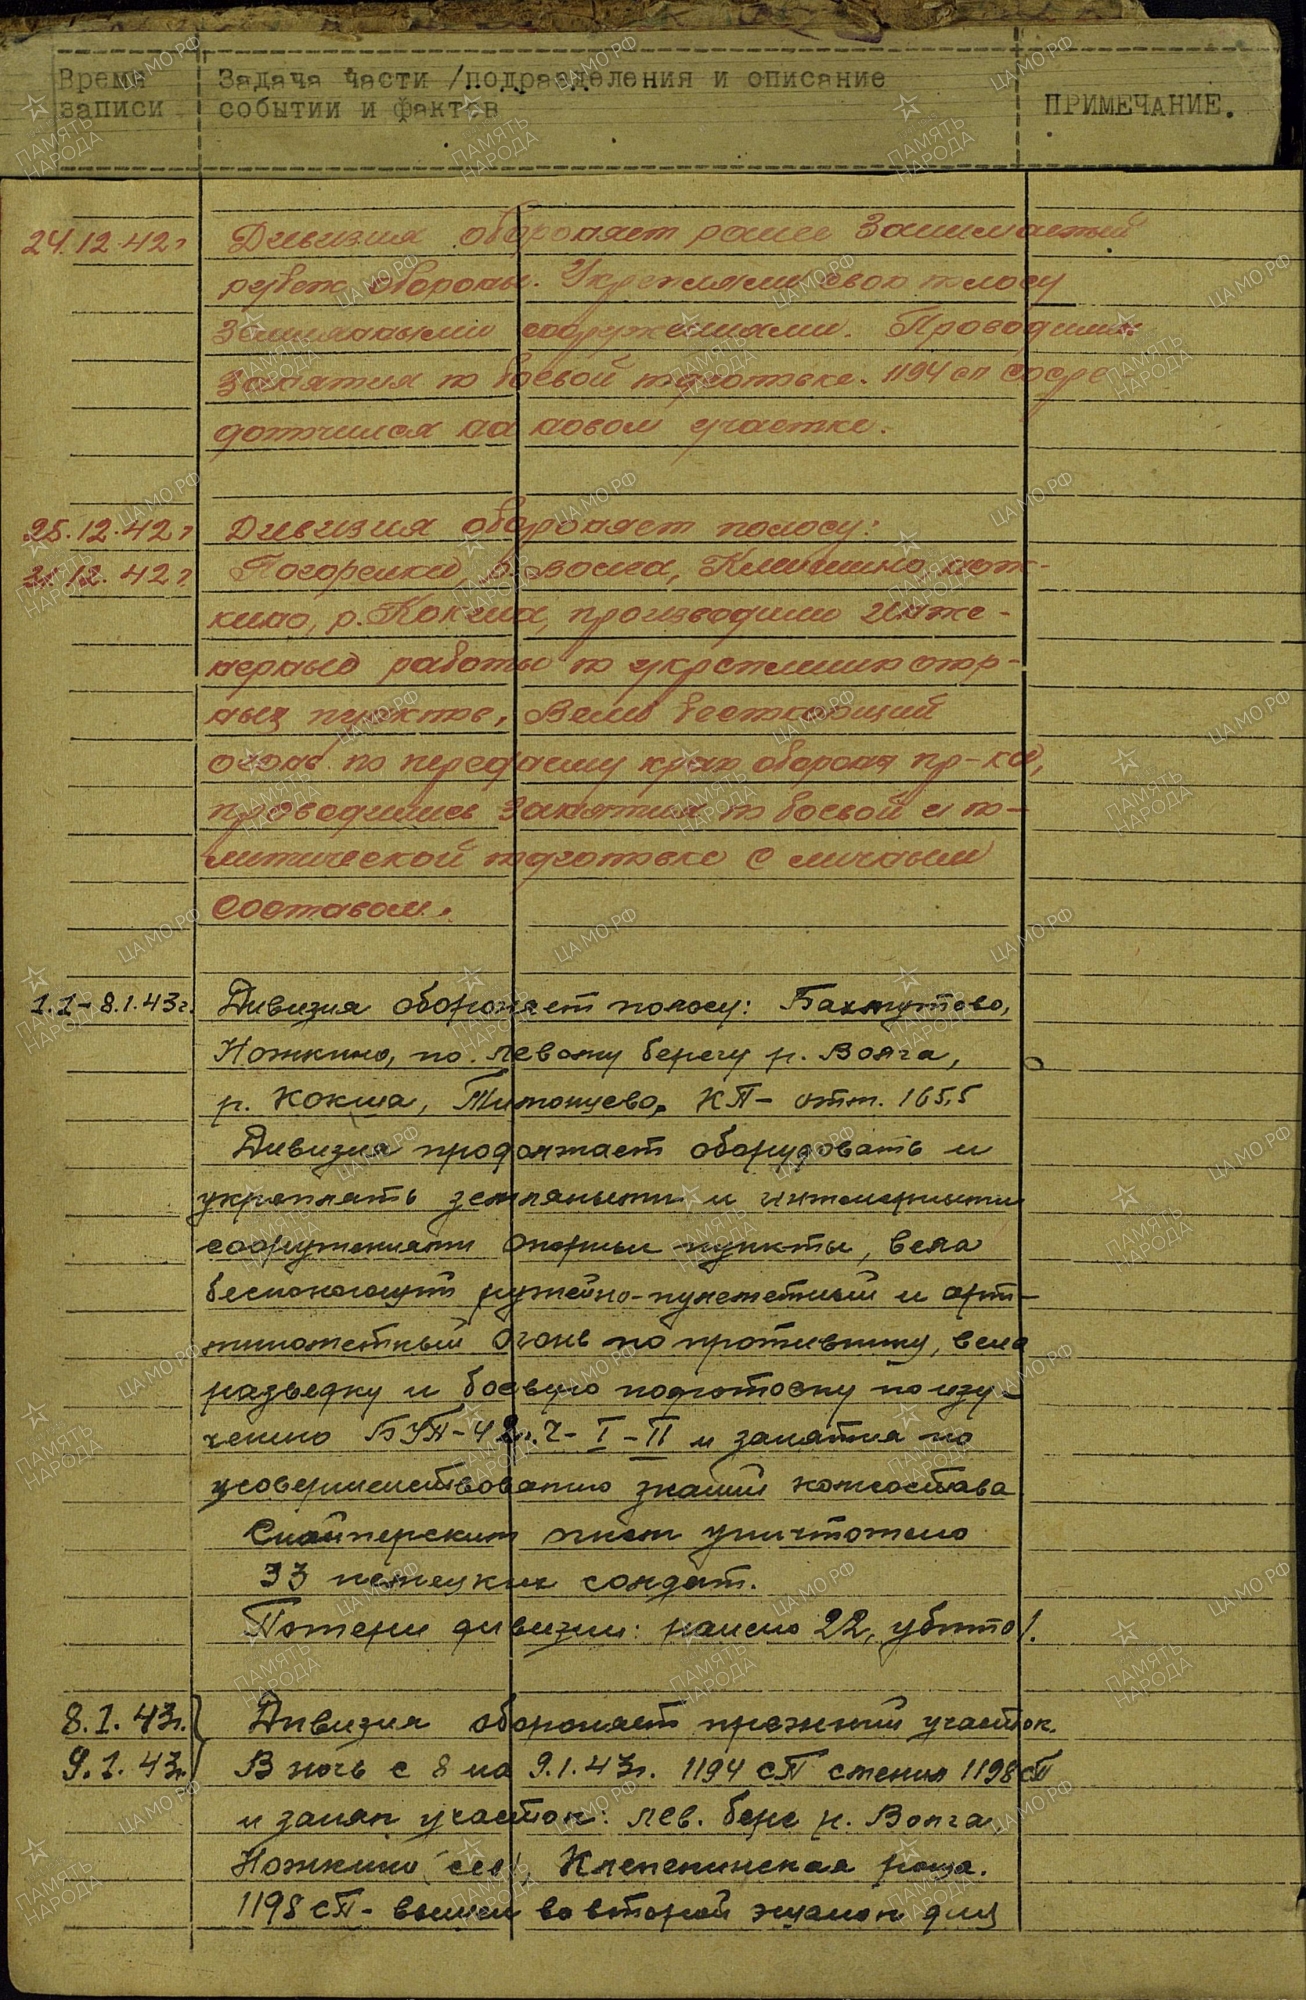 Время записи
Задача части /подразделения и описание
событии и фактов
ПРИМЕЧАНИЕ.
24.12.42г Дивизия обороняет ранее занимаемый
рубеж обороны. Укрепляли свою полосу
земляными сооружениями. Проводились
занятия по боевой подготовке. 1194 сп сосре
доточился на новом участке.
25.12.42г Дивизия обороняет полосу:
31.12.42г Погорелки, р. Волга, Клешнино, Нож-
кино, р. Кокша, производили инже-
нерные работы по укреплению опор-
ных пунктов. Вели беспокоющий
огонь по переднему краю обороны пр-ка,
проводились занятия по боевой и по-
литической подготовке с личным
составом.
1.1-8.1.43г. Дивизия обороняет полосу: Бахмутово,
Ножкино, по левому берегу р. Волга,
р. Кокша, Тимонцево. КП - отм. 165,5
Дивизия продолжает оборудовать и
укреплять земляными и инженерными
сооружениями опорные пункты, вела
беспокоющий ружейно-пулеметный и арт-
минометный огонь по противнику, вела
разведку и боевую подготовку по изу-
чению БУП-42г. Ч-I-II и занятия по
усовершенствованию знаний комсостава
Снайперским огнем уничтожено
33 немецких солдат.
Потери дивизии: ранено 22, убито 1.
8.1.43г. Дивизия обороняет прежний участок.
9.1.43г. В ночь с 8 на 9.1.43г. 1194 СП сменил 1198 СП
и занял участок: лев. берег р. Волга,
Ножкино, Клепенинская роща.
1198 СП - вышел во второй эшелон див